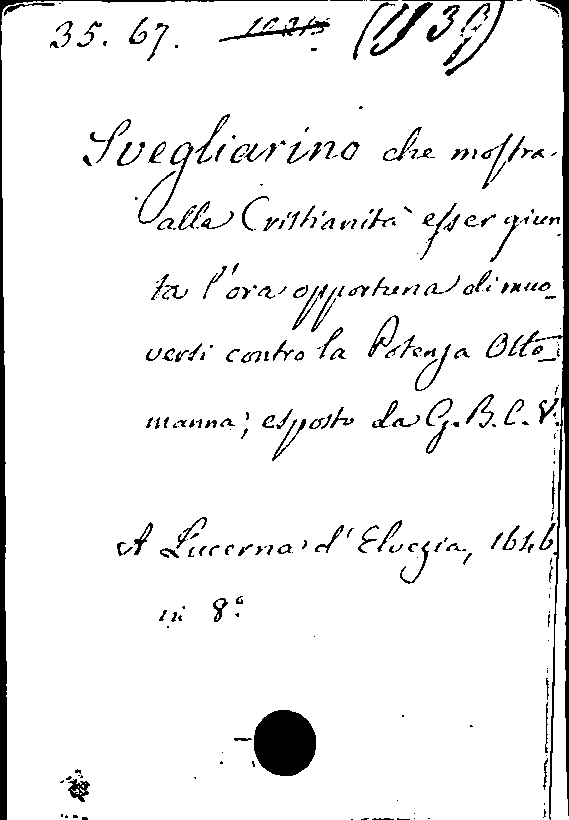 35. 67.
Svegliarino che mostra
alla Cristianità esser giun
ta l'ora opportuna di muo_
versi contro la Potenza Otto_
manna; esposto da G. B. C. V.
A Lucerna d'Elvezia, 1646
in 8º